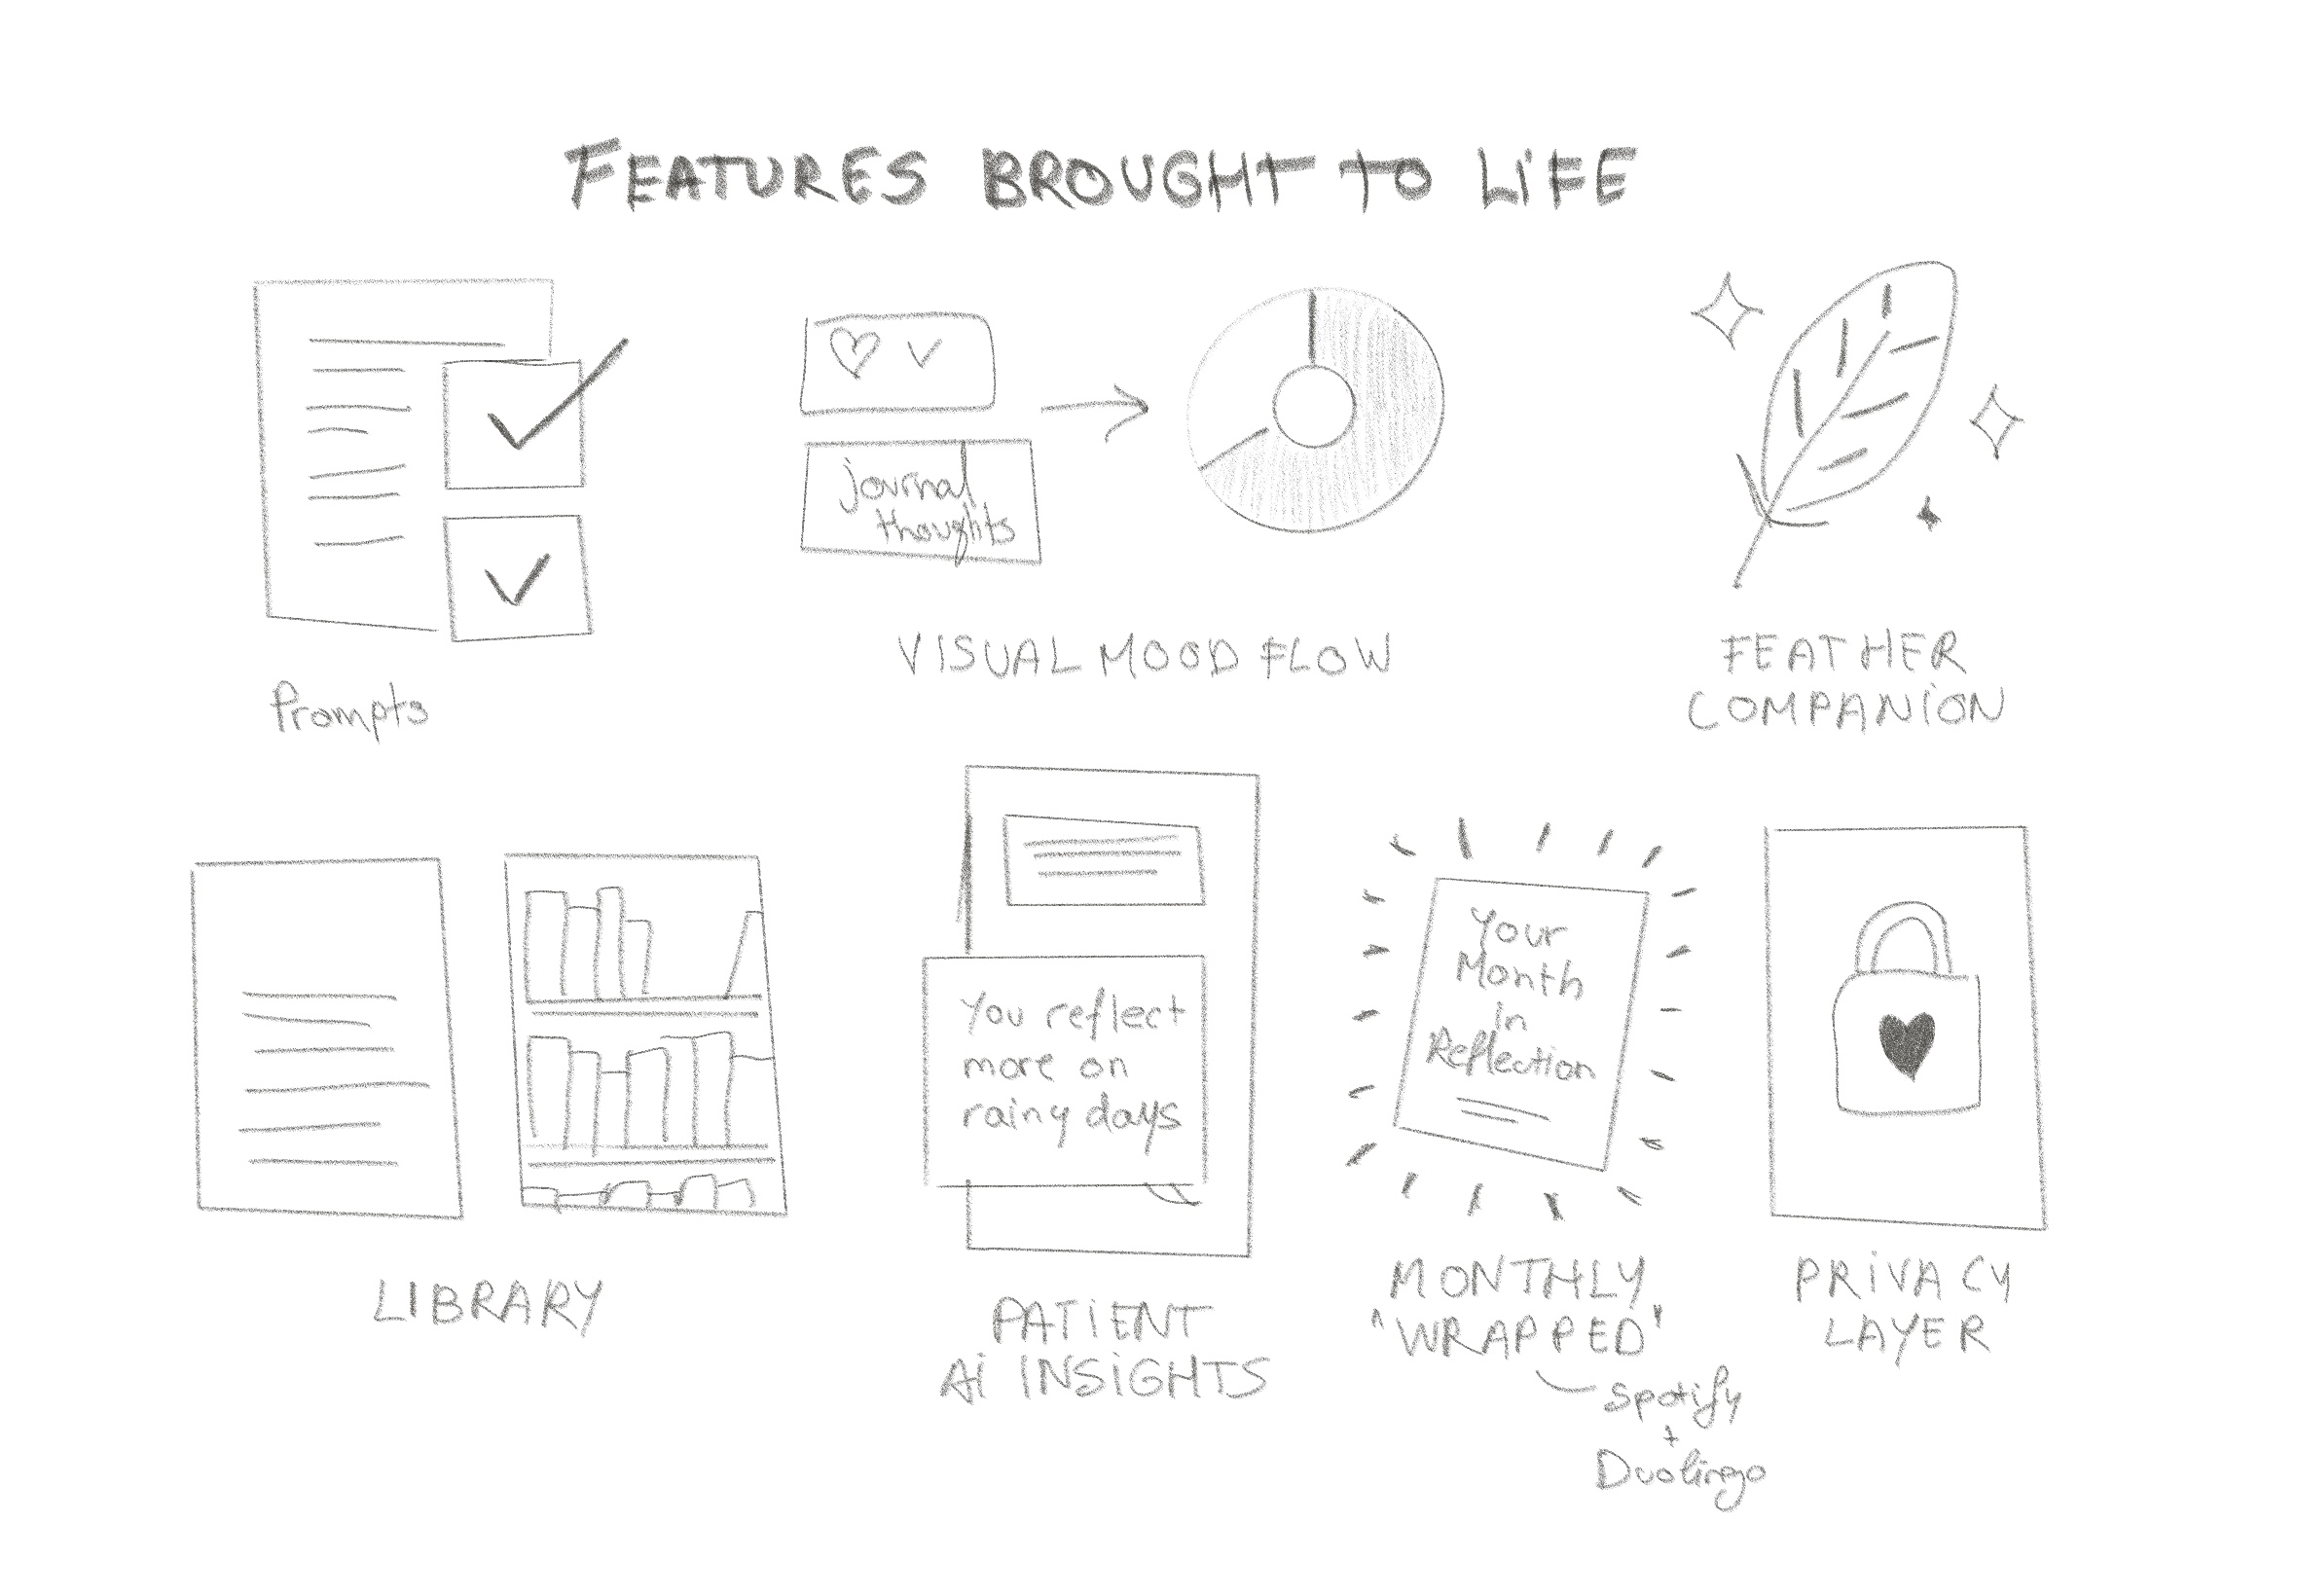 FEATURES BROUGHT TO LIFE
journal
thoughts
Prompts
VISUAL MOOD FLOW
FEATHER
COMPANION
LIBRARY
You reflect
more on
rainy days
PATIENT
AI INSIGHTS
Your
Month
in
Reflection
MONTHLY
"WRAPPED"
Spotify
+
Duolingo
PRIVACY
LAYER